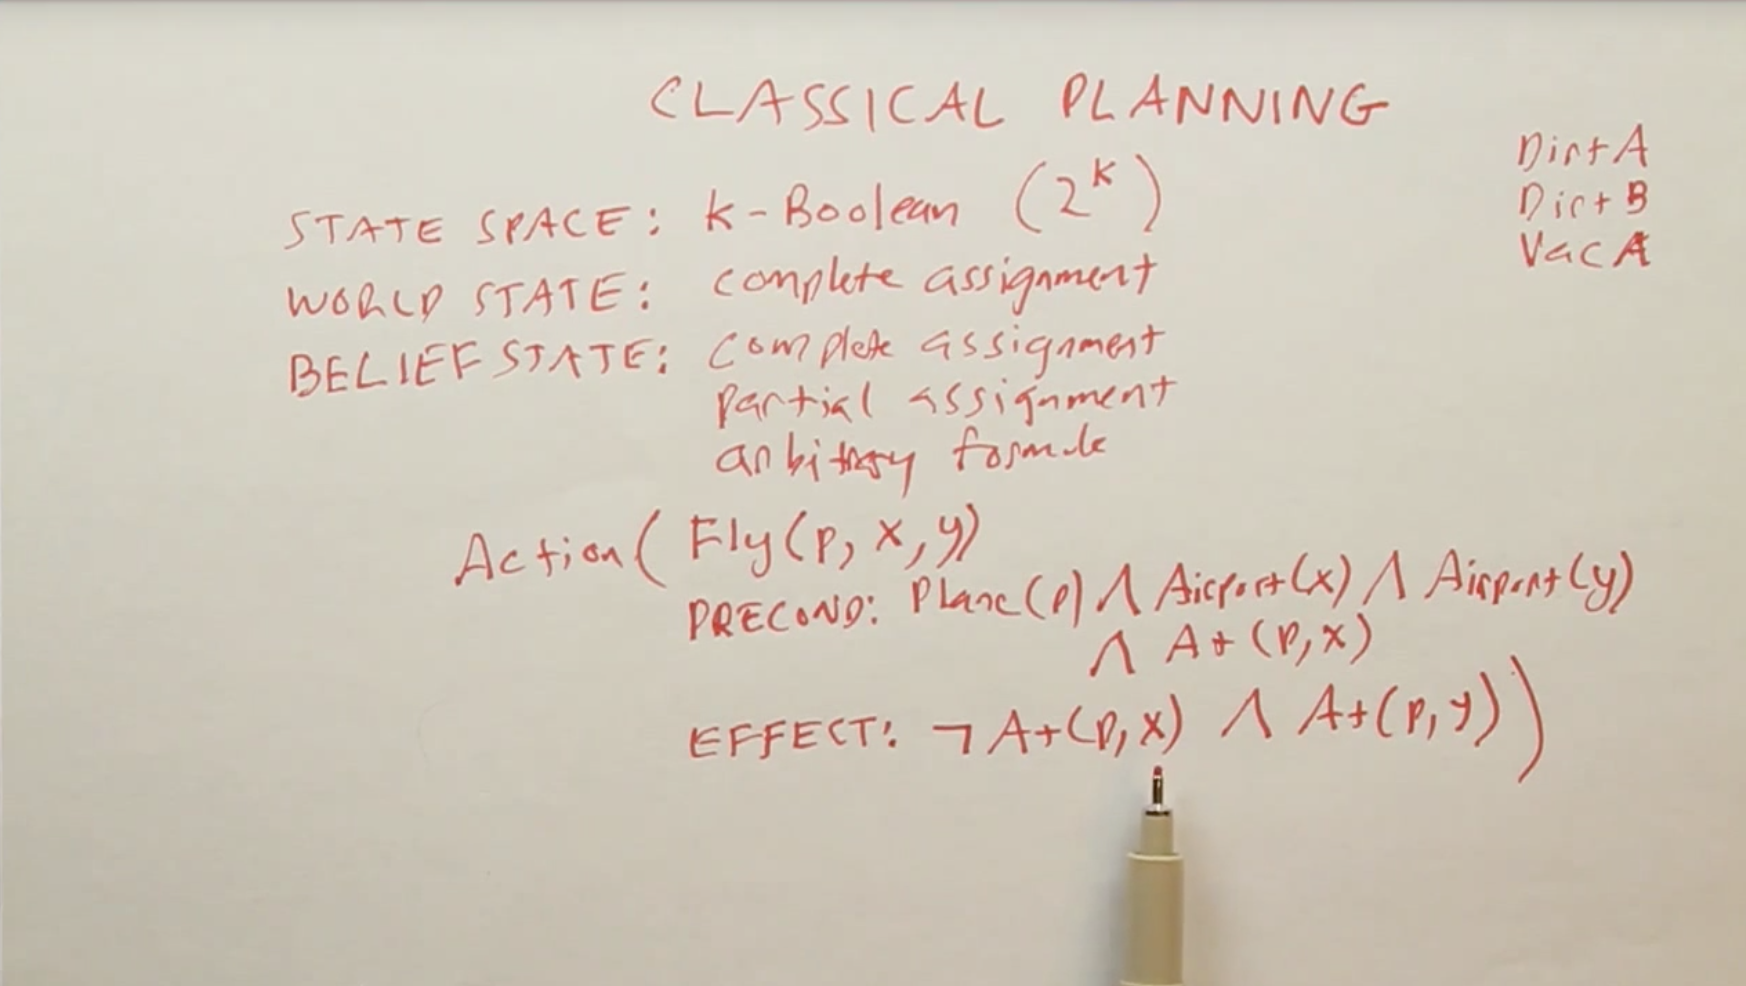 CLASSICAL PLANNING
STATE SPACE: k-Boolean (2^k)
WORLD STATE: complete assignment
BELIEF STATE: complete assignment
partial assignment
arbitrary formula
Dirt A
Dirt B
Vac A
Action( Fly(p, x, y)
PRECOND: Plane(p) ∧ Airport(x) ∧ Airport(y)
∧ At(p, x)
EFFECT: ¬ At(p, x) ∧ At(p, y))